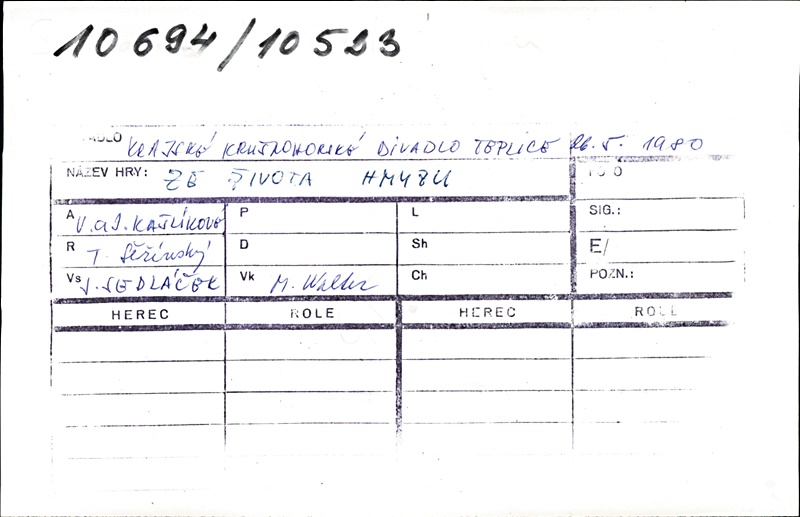 10694/10523
DIVADLO KRAJSKÉ KRUŠNOHORSKÉ DIVADLO TEPLICE 26.5. 1980
NÁZEV HRY: ZE ŽIVOTA HMYZU
A V. a J. KAŠLÍKOVÉ P L SIG.:
R T. Šeřínský D Sh E/
Vs J. SEDLÁČEK Vk M. Walter Ch POZN.:
HEREC ROLE HEREC ROLE